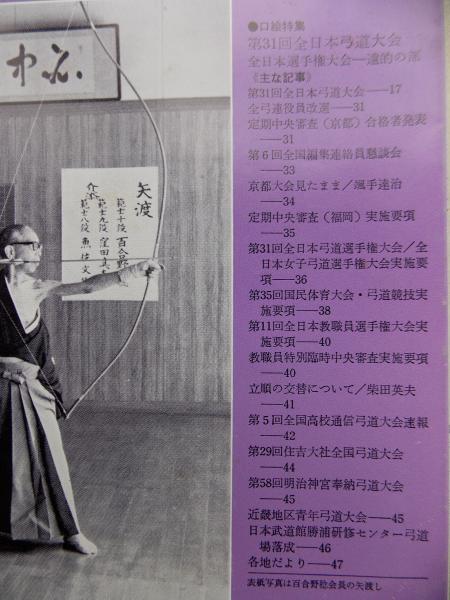 ●口絵特集
第31回全日本弓道大会
全日本選手権大会—遠的の部
《主な記事》
第31回全日本弓道大会——17
全弓連役員改選——31
定期中央審査（京都）合格者発表
——31
第6回全国編集連絡員懇談会
——33
京都大会見たまま／颯手達治
——34
定期中央審査（福岡）実施要項
——35
第31回全日本弓道選手権大会／全
日本女子弓道選手権大会実施要
項——36
第35回国民体育大会・弓道競技実
施要項——38
第11回全日本教職員選手権大会実
施要項——40
教職員特別臨時中央審査実施要項
——40
立順の交替について／柴田英夫
——41
第5回全国高校通信弓道大会速報
——42
第29回住吉大社全国弓道大会
——44
第58回明治神宮奉納弓道大会
——45
近畿地区青年弓道大会——45
日本武道館勝浦研修センター弓道
場落成——46
各地だより——47
表紙写真は百合野稔会長の矢渡し
矢渡
範士十段 百合野
介添 範士九段 窪田
範士八段 魚住文